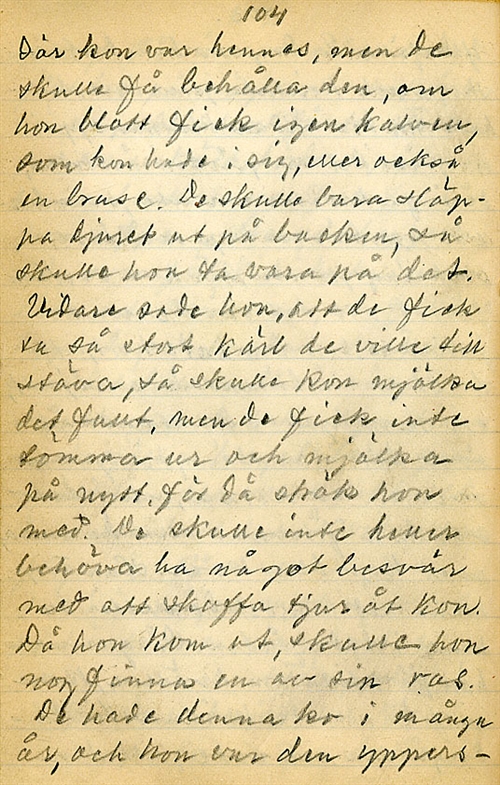 104
där kon var hennes, men de
skulle få behålla den, om
hon blott fick igen kalven,
som kon hade i sig, eller också
en brase. De skulle bara släp-
pa djuret ut på backen, så
skulle hon ta vara på det.
Vidare sade hon, att de fick
ta så stort kärl de ville till
stäva, så skulle kon mjölka
det fullt, men de fick inte
tömma ur och mjölka
på nytt, för då strök hon
med. De skulle inte heller
behöva ha något besvär
med att skaffa tjur åt kon.
Då hon kom ut, skulle hon
nog finna en av sin ras.
De hade denna ko i många
år, och hon var den yppers-